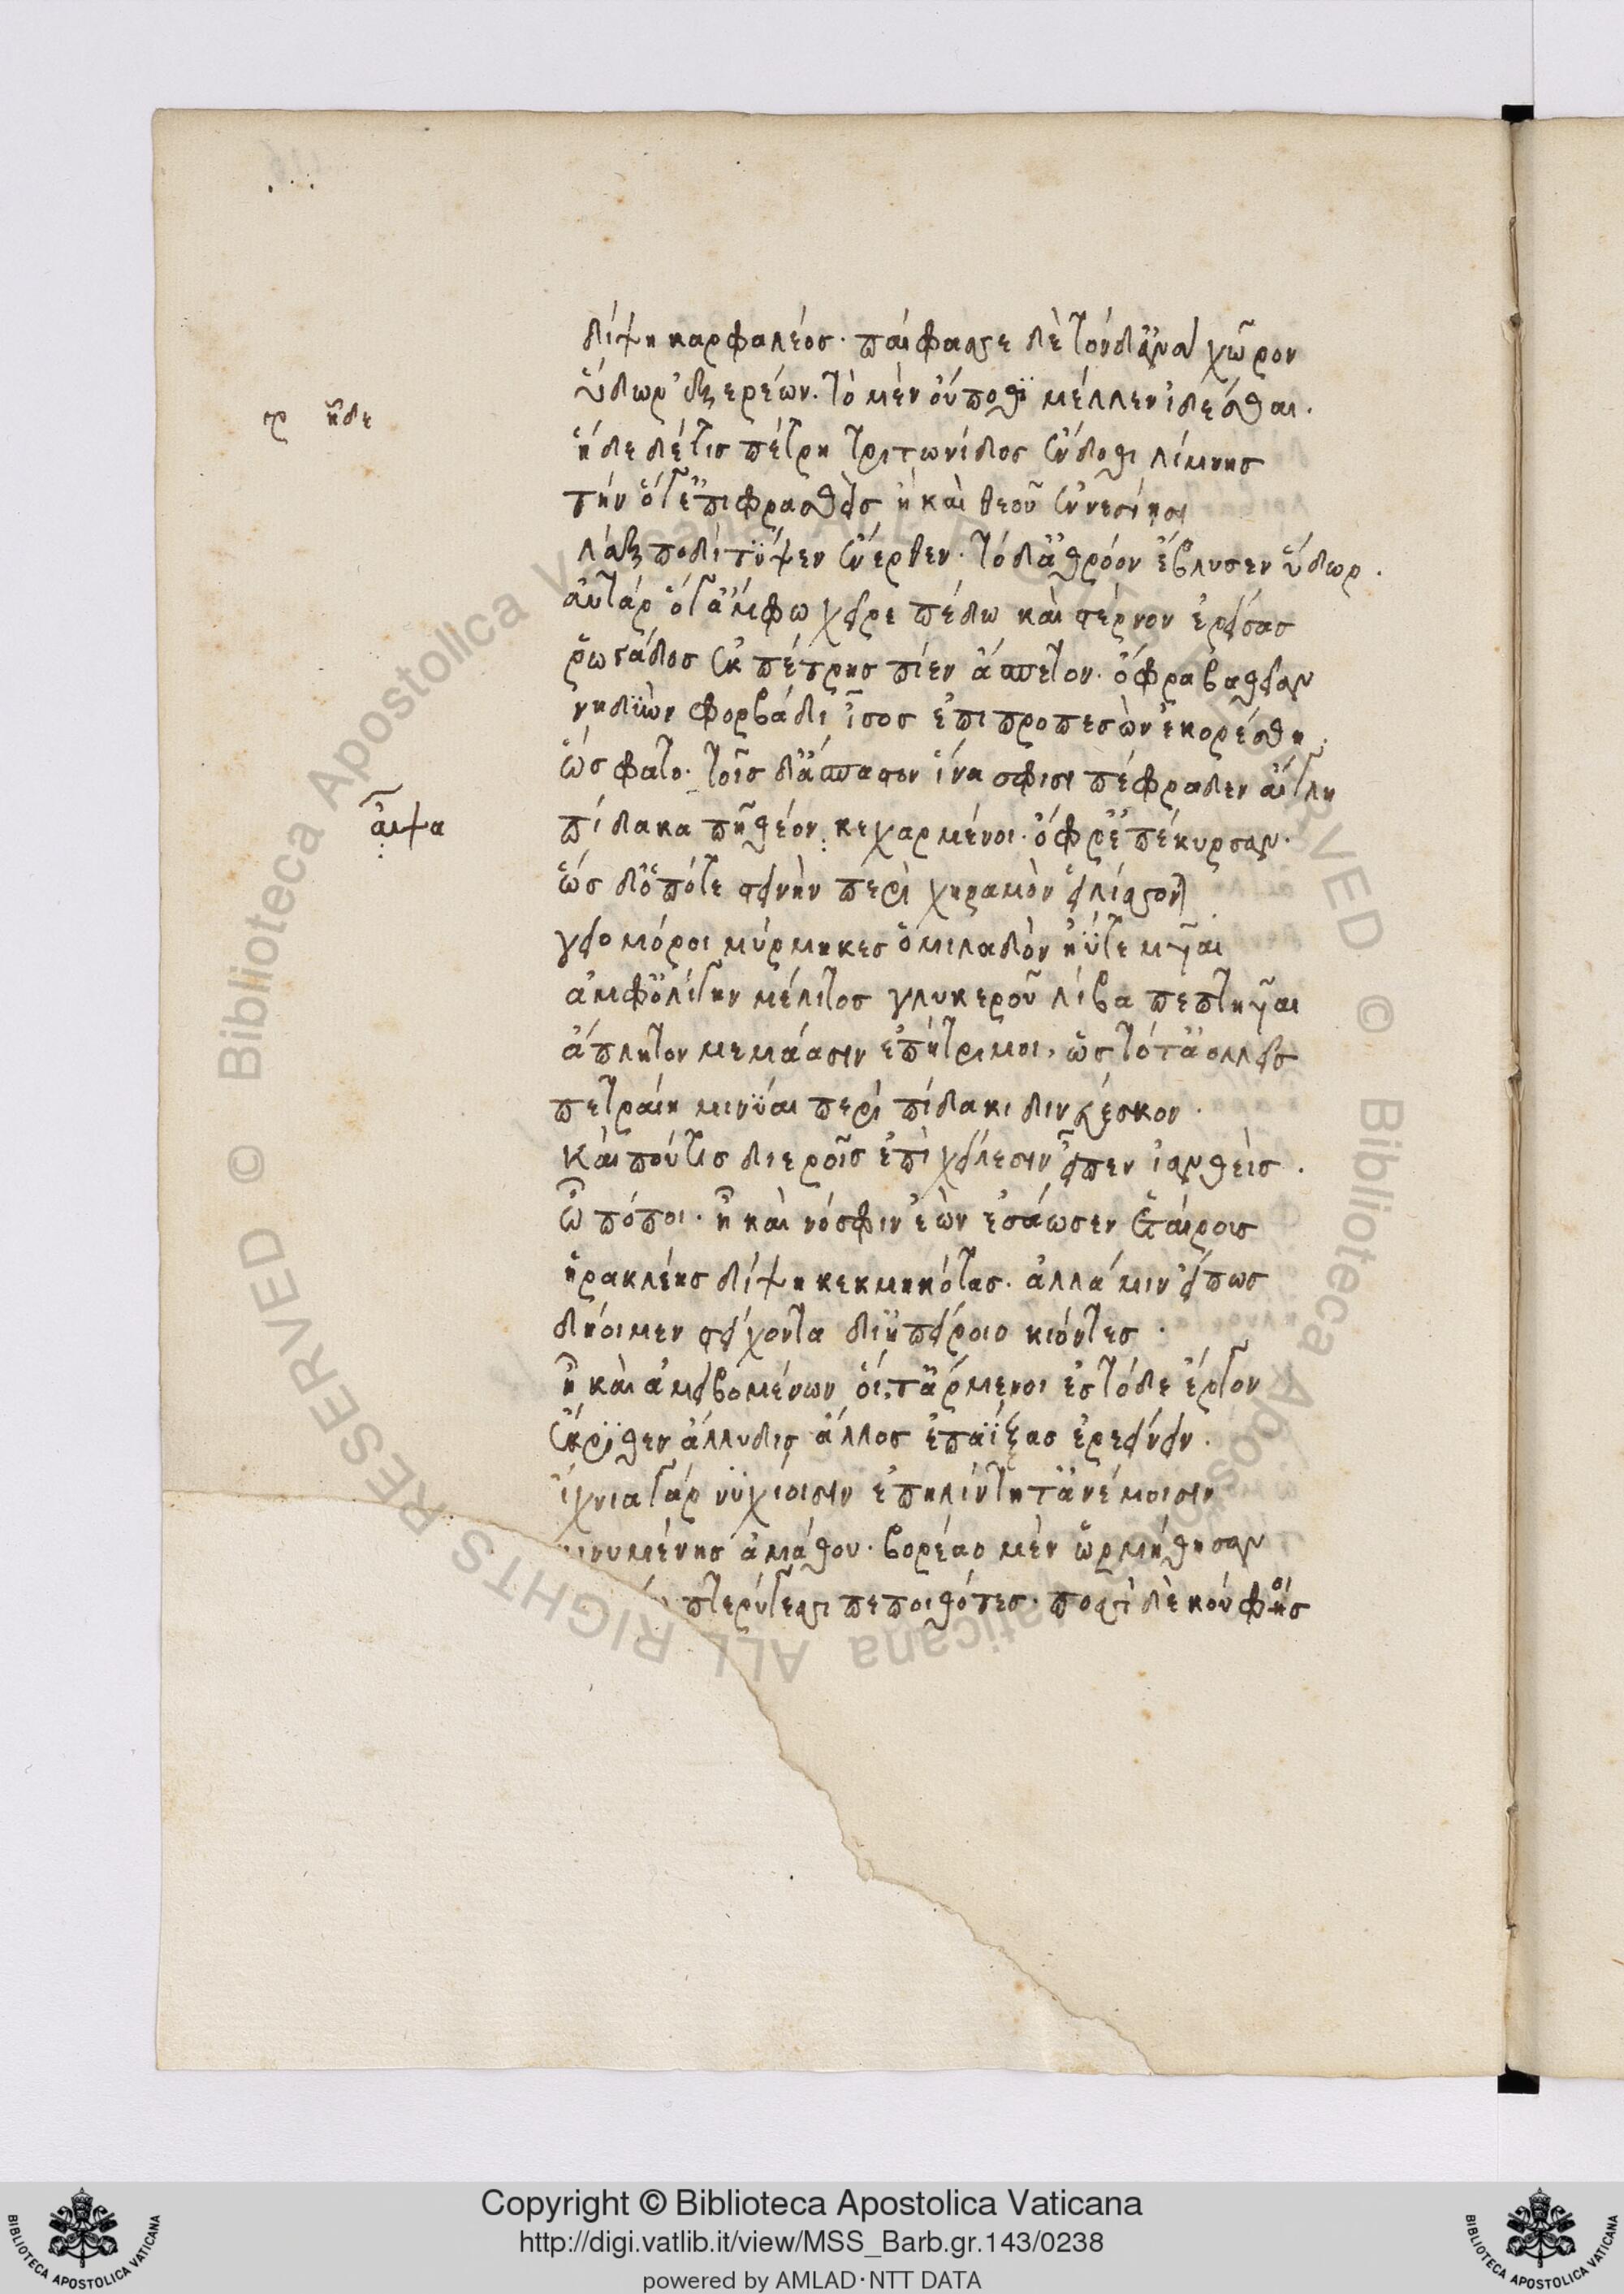 δίψη καρφαλέος. παίφασσε δὲ τόνδ' ἀνὰ χῶρον
ὕδωρ ἐξερέων. τὸ μὲν οὔποθι μέλλεν ἰδέσθαι.
γρ ἥδε
ἡ δε δέ τις πέτρη τριτωνίδος ἐνδοθι λίμνης
τὴν ὅγ' ἐπιφρασθεὶς ἢ καὶ θεοῦ ἐννεσίῃσι
λὰξ ποδὶ τύψεν ἔνερθεν. τὸ δ' ἀθρόον ἔβλυσεν ὕδωρ.
αὐτὰρ ὅγ' ἄμφω χεῖρε πέδω καὶ στέρνον ἐρείσας
ῥωγάδος ἐκ πέτρης πίεν ἄσπετον. ὄφρα βαθεῖαν
νηδὺν φορβάδι ἶσος ἐπιπροπεσὼν ἐκορέσθη.
ὣς φάτο. τοῖς δ' ἀσπαστὸν ἵνα σφισι πέφραδεν αἴγλη
αἶψα
πίδακα πηθέον κεχαρμένοι. ὄφρ' ἐπέκυρσαν.
ὡς δ' ὁπότε στεινὴν περὶ χηραμὸν εἱλίσσονται
γειομόροι μύρμηκες ὁμιλαδὸν ἠΰτε μυῖαι
ἀμφ' ὀλίγην μέλιτος γλυκεροῦ λίβα πεπτηυῖαι
ἄπλητον μεμάασιν ἐπήτριμοι, ὣς τότ' ἀολλεῖς
πετραίη μινύαι περὶ πίδακι δινεύεσκον.
καί πού τις διεροῖς ἐπὶ χείλεσιν εἶπεν ἰανθείς.
ὢ πόποι. ἦ καὶ νόσφιν ἐὼν ἐσάωσεν ἑταίροις
ἡρακλέης δίψη κεκμηκότας. ἀλλά μιν εἴπως
δήοιμεν στείχοντα δι' ἠπείροιο κιόντες.
ἦ καὶ ἀμειβομένων οἵ τ' ἄρμενοι ἐς τόδε ἔργον
ἔκριθεν ἄλλυδις ἄλλος ἐπαΐξας ἐρεείνειν.
ἴχνια γὰρ νυχίοισιν ἐπηλίντητ' ἀνέμοισιν
κινυμένης ἀμάθου. βορέαο μὲν ὡρμήθησαν
πτερύγεσσι πεποιθότες. ποσσὶ δὲ κούφοις
Copyright © Biblioteca Apostolica Vaticana
http://digi.vatlib.it/view/MSS_Barb.gr.143/0238
powered by AMLAD·NTT DATA